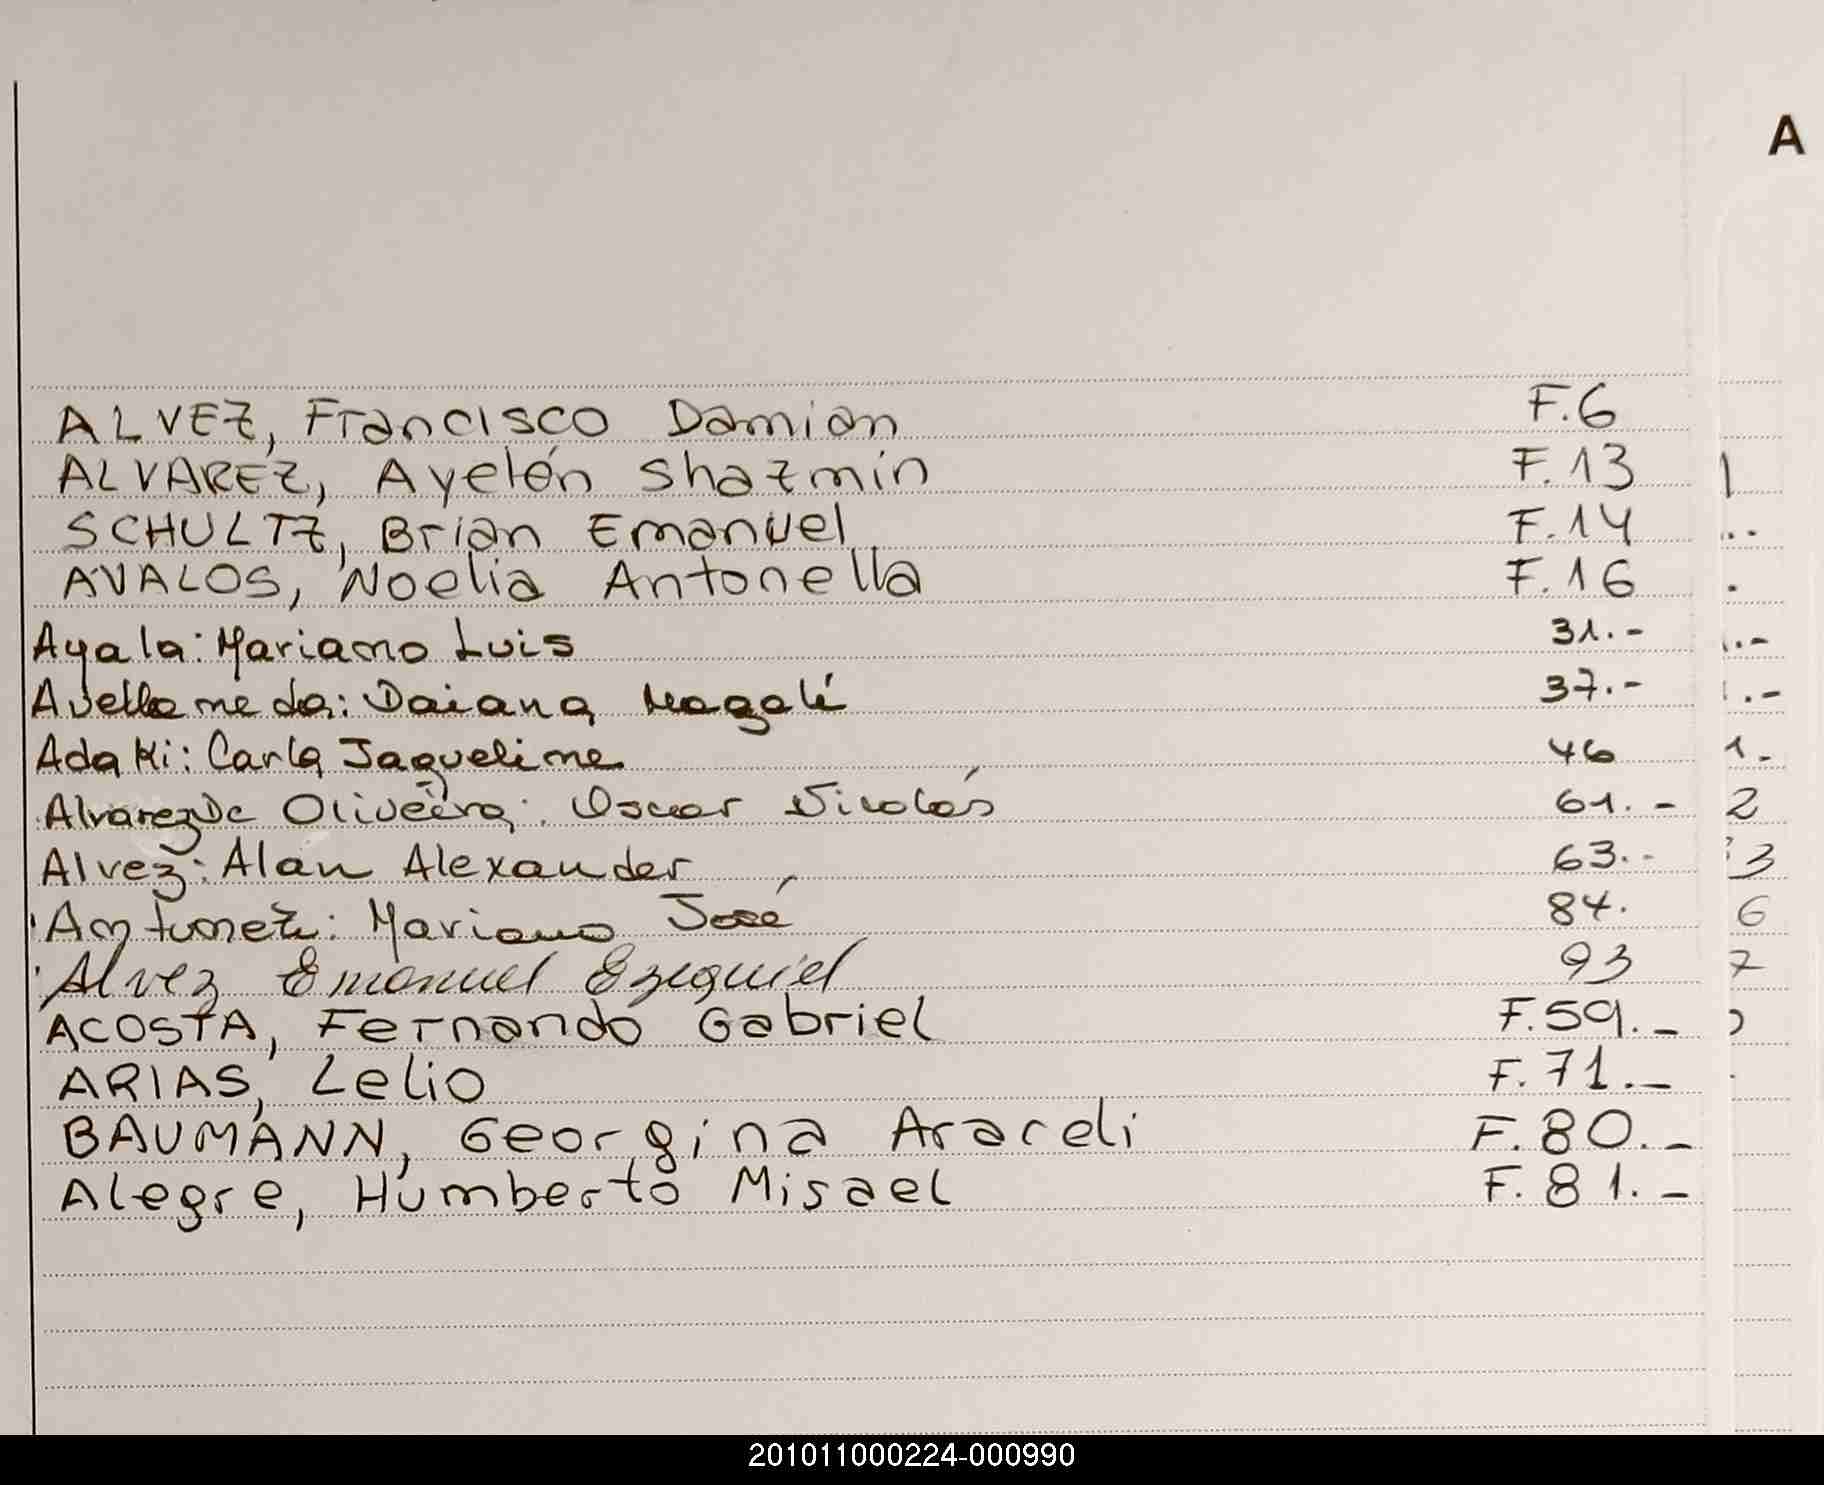 A
ALVEZ, Francisco Damian F.6
ALVAREZ, Ayelén Shazmín F.13
SCHULTZ, Brian Emanuel F.14
AVALOS, Noelia Antonella F.16
Ayala: Mariano Luis 31.-
Avellaneda: Daiana Magalí 37.-
Adaki: Carla Jaqueline 46
Alvarez De Oliveira: Oscar Nicolás 61.-
Alvez: Alan Alexander 63.-
Antunez: Mariano José 84.
Alvez Emanuel Ezequiel 93
ACOSTA, Fernando Gabriel F.59.-
ARIAS, Lelio F.71.-
BAUMANN, Georgina Araceli F.80.-
Alegre, Humberto Misael F.81.-
201011000224-000990